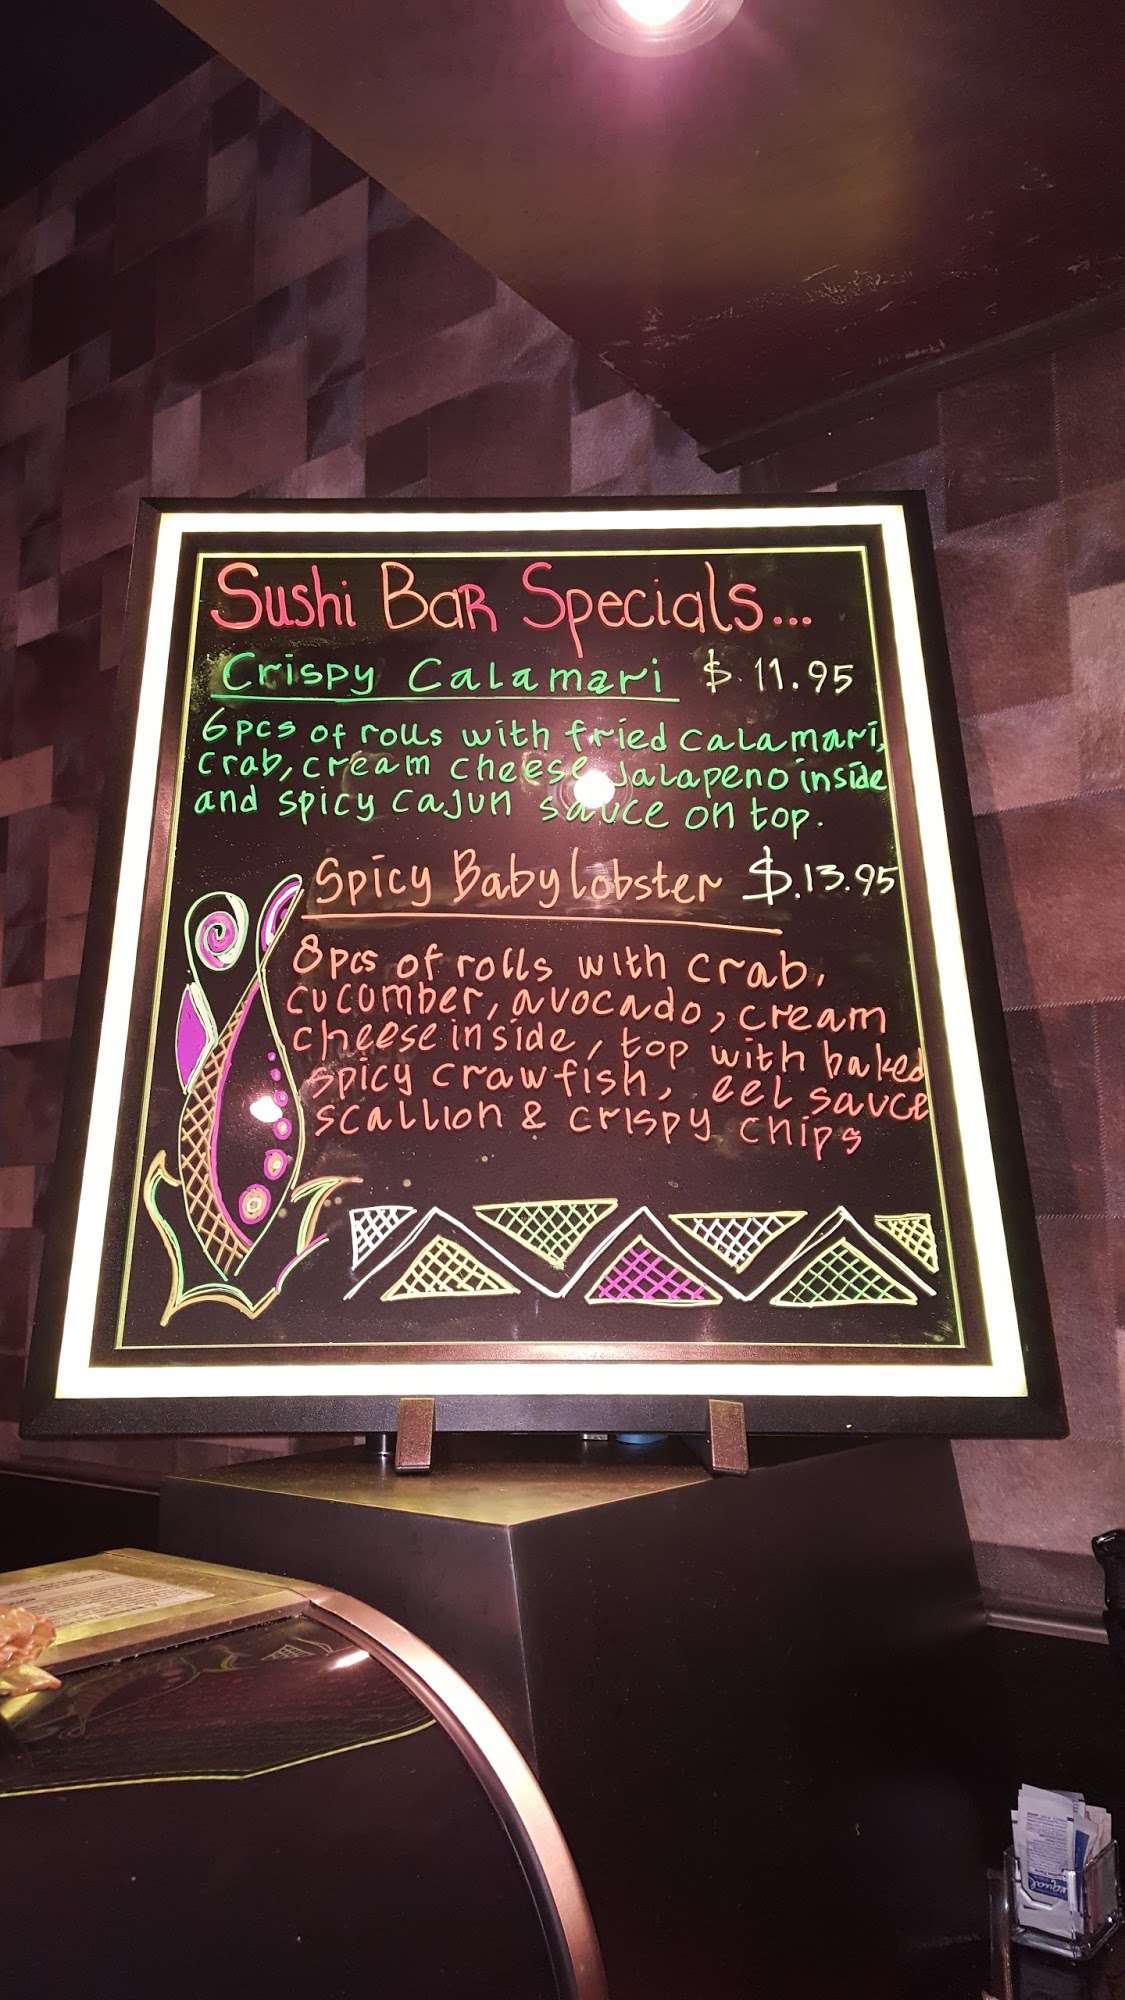 Sushi Bar Specials...
Crispy Calamari $ 11.95
6pcs of rolls with fried calamari,
crab, cream cheese Jalapeno inside
and spicy cajun sauce on top.
Spicy Baby lobster $.13.95
8pcs of rolls with crab,
cucumber, avocado, cream
cheese inside, top with baked
spicy crawfish, eel sauce
scallion & crispy chips
equal